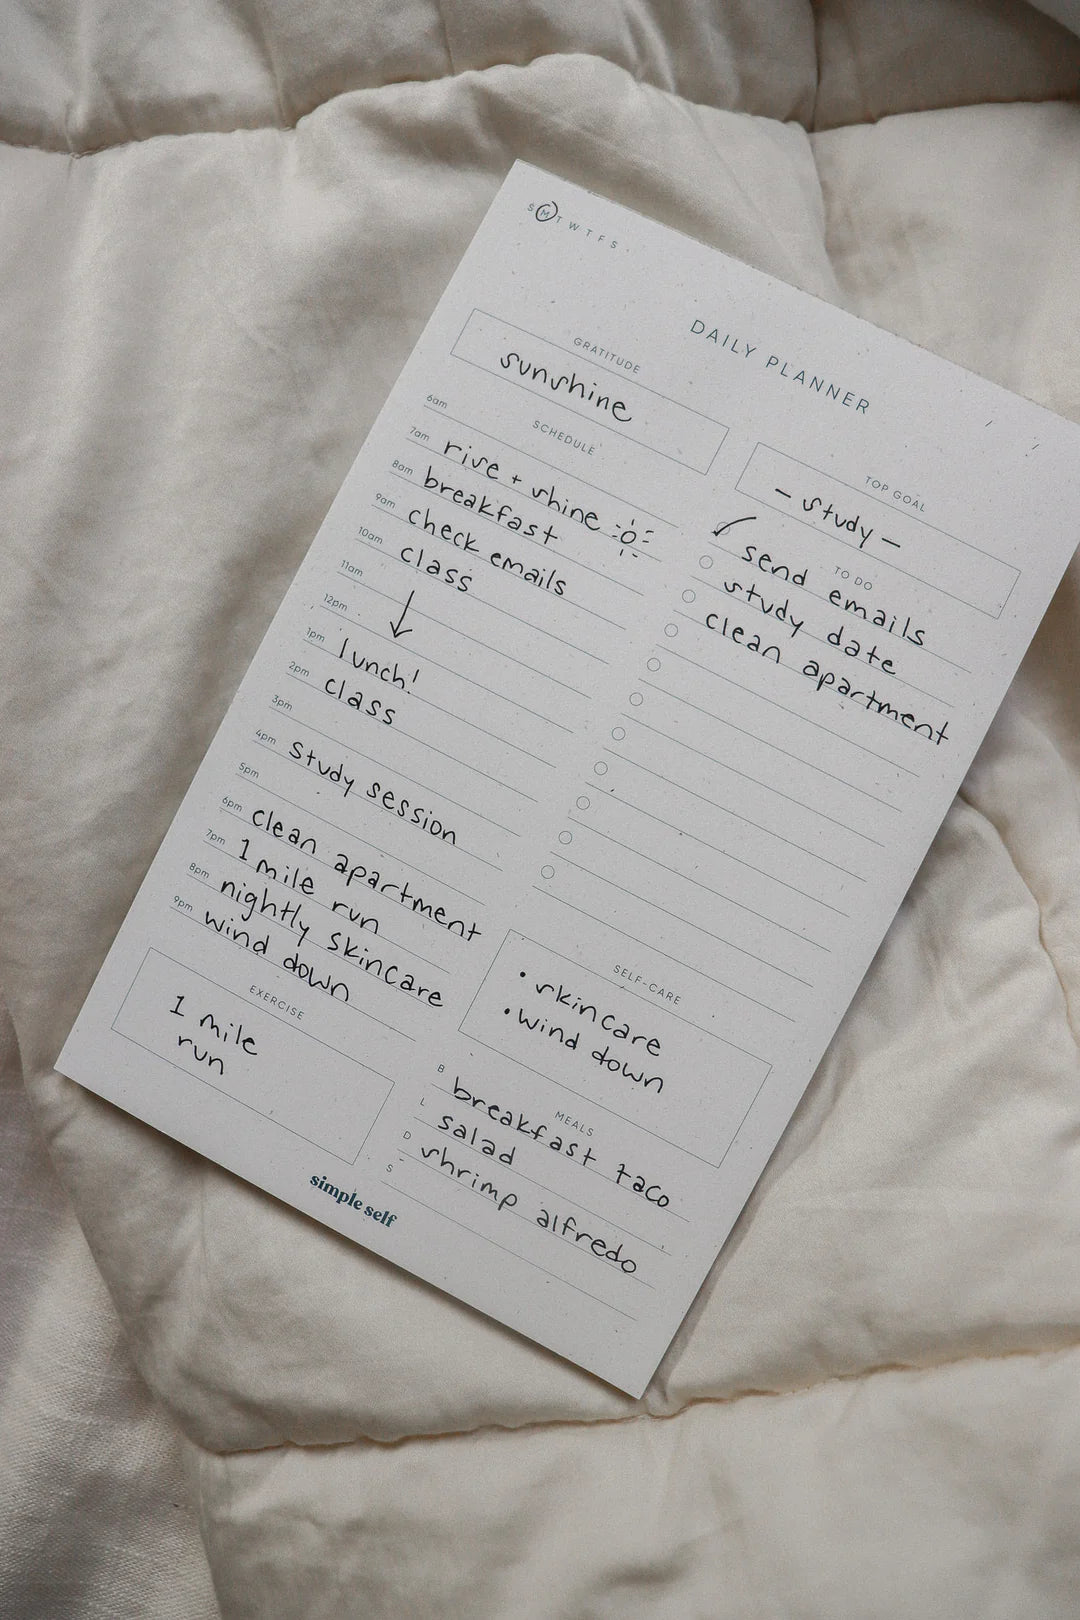 S M T W T F S
DAILY PLANNER
GRATITUDE
sunshine
SCHEDULE
6am
7am rise + shine
8am breakfast
9am check emails
10am class
11am
12pm
1pm lunch!
2pm class
3pm
4pm study session
5pm
6pm clean apartment
7pm 1 mile run
8pm nightly skincare
9pm wind down
EXERCISE
1 mile
run
simple self
TOP GOAL
- study -
TO DO
send emails
study date
clean apartment
SELF-CARE
• skincare
• wind down
MEALS
B breakfast taco
L salad
D shrimp alfredo
S